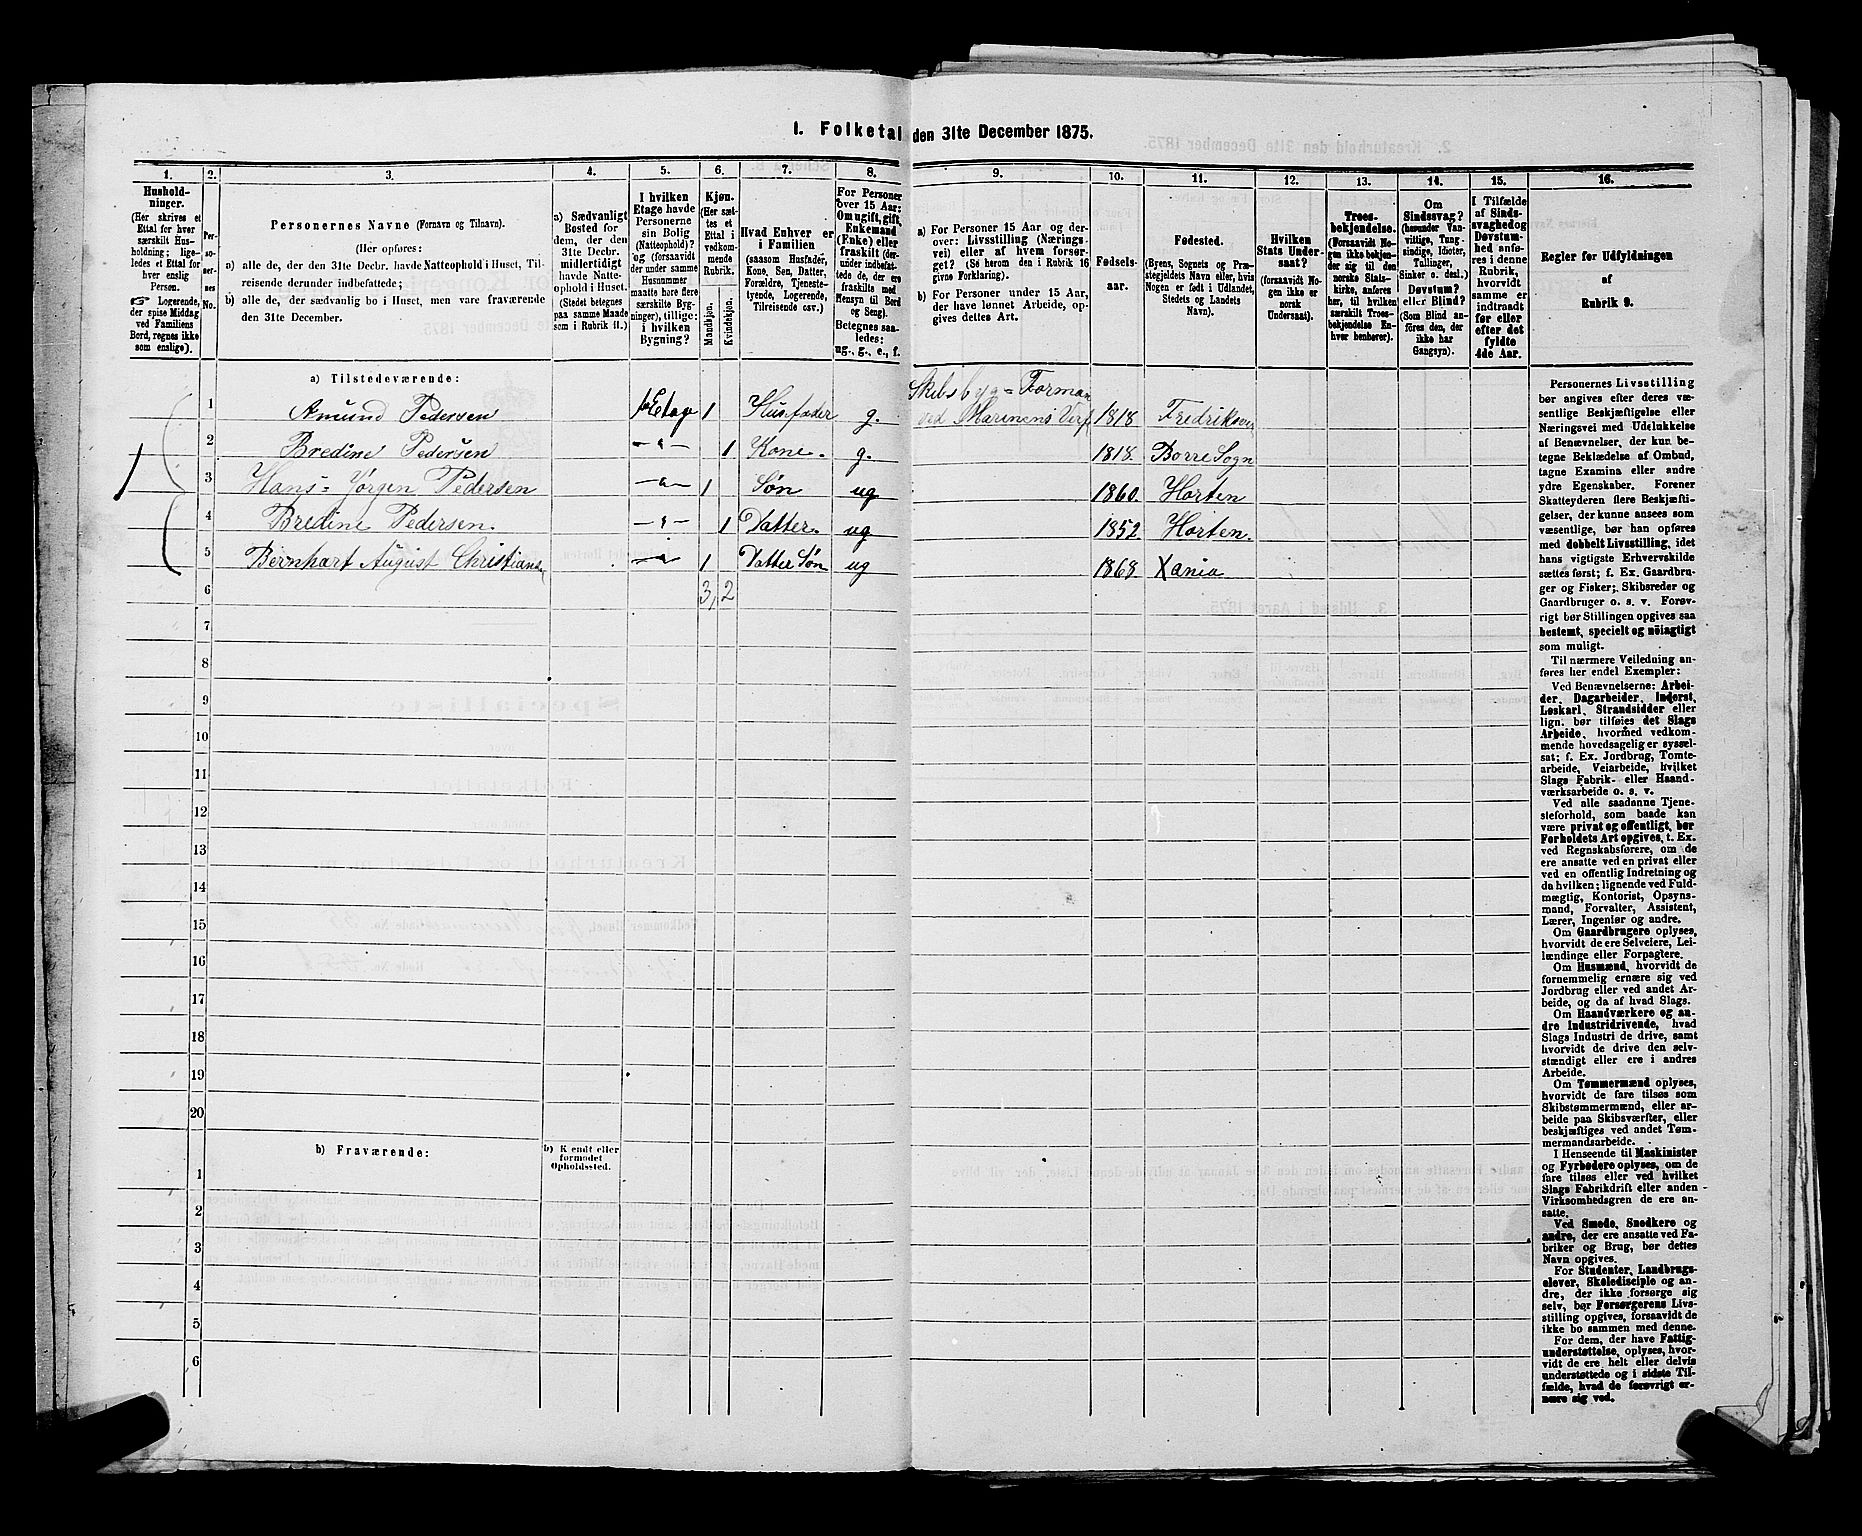 1. Folketal den 31te December 1875.
1. 2. 3. 4. 5. 6. 7. 8. 9. 10. 11. 12. 13. 14. 15. 16.
Hushold-
ninger.
(Her skrives et
Ettal for hver
særskilt Hus-
holdning; lige-
ledes et Ettal for
hver enslig
Person.
☞ Logerende,
der spise Middag
ved Familiens
Bord, regnes ikke
som enslige).
Per-
so-
ner-
nes
No.
Personernes Navne (Fornavn og Tilnavn).
(Her opføres:
a) alle de, der den 31te Decbr. havde Natteophold i Huset, Til-
reisende derunder indbefattede;
b) alle de, der sædvanlig bo i Huset, men vare fraværende
den 31te December.
a) Sædvanligt
Bosted for
dem, der den
31te Decbr.
midlertidigt
havde Natte-
ophold i Huset.
(Stedet betegnes
paa samme Maade
som i Rubrik 11.)
I hvilken
Etage havde
Personerne
sin Bolig
(Natteophold)?
og (forsaavidt
der under samme
Husnummer
maatte høre flere
særskilte Byg-
ninger), tillige:
i hvilken
Bygning?
Kjøn.
(Her sæt-
tes et
Ettal i
vedkom-
mende
Rubrik.
Mandkjøn.
Kvindekjøn.
Hvad Enhver er
i Familien
(saasom Husfader,
Kone, Søn, Datter,
Forældre, Tjeneste-
tyende, Logerende,
Tilreisende osv.)
For Personer
over 15 Aar:
Om ugift, gift,
Enkemand
(Enke) eller
fraskilt (der-
under indbefat-
tede de, der ere
fraskilte med
Hensyn til Bord
og Seng).
Betegnes saa-
ledes:
ug., g., e., f.
a) For Personer 15 Aar og der-
over: Livsstilling (Nærings-
vei) eller af hvem forsør-
get? (Se herom den i Rubrik 16
givne Forklaring).
b) For Personer under 15 Aar,
der have lønnet Arbeide, op-
gives dettes Art.
Fødsels-
aar.
Fødested.
(Byens, Sognets og Præ-
stegjeldets Navn eller, hvis
Nogen er født i Udlandet,
Stedets og Landets
Navn).
Hvilken
Stats Under-
saat?
(forsaavidt No-
gen ikke er
norsk
Undersaat).
Troes-
bekjendelse.
(Forsaavidt No-
gen ikke bekjen-
der sig til den
norske Stats-
kirke, anføres
her, til hvilken
særskilt Troes-
bekjendelse En-
hver henhører).
Om
Sindssvag?
(herunder Van-
vittige, Tung-
sindige, Idioter,
Tullinger,
Sinker o. desl.)
Døvstum?
eller Blind?
(Som Blind an-
føres den, der
ikke har
Gangsyn).
I Tilfælde
af Sinds-
svaghed og
Døvstum-
hed anfø-
res i denne
Rubrik,
hvorvidt
samme er
indtraadt
før eller
efter det
fyldte
4de Aar.
Regler for Udfyldningen
af
Rubrik 9.
a) Tilstedeværende:
1 Amund Pedersen 1ste Etage 1 Husfader g. Skibsbyg=Forman ved Marinens Verf 1818 Fredriksver
2 Bredine Pedersen -"- 1 Kone. g. 1818. Borre Sogn
1 3 Hans=Jørgen Pedersen -"- 1 Søn ug 1860. Horten
4 Bredine Pedersen. -"- 1 Datter. ug 1852. Horten.
5 Bernhart August Christians -"- 1 Datter Søn ug 1868. Xania
6 3, 2
7
8
9
10
11
12
13
14
15
16
17
18
19
20
b) Fraværende:
b) Kendt eller
formodet
Opholdssted.
1
2
3
4
5
6
Personernes Livsstilling
bør angives efter deres væ-
sentlige Beskjæftigelse eller
Næringsvei med Udelukkelse
af Benævnelser, der kun be-
tegne Beklædelse af Ombud,
tagne Examina eller andre
ydre Egenskaber. Forener
Skatteyderen flere Beskjæfti-
gelser, der kunne ansees som
væsentlige, bør han opføres
med dobbelt Livsstilling, idet
hans vigtigste Erhvervskilde
sættes først; f. Ex. Gaardbru-
ger og Fisker; Skibsreder og
Gaardbruger o. s. v. Forøv-
rigt bør Stillingen opgives saa
bestemt, specielt og nöiagtigt
som muligt.
Til nærmere Veiledning an-
føres her endel Exempler:
Ved Benævnelserne: Arbei-
der, Dagarbeider, Inderst,
Løskarl, Strandsidder eller
lign. bør tilføies det Slags
Arbeide, hvormed vedkom-
mende hovedsagelig er syssel-
sat; f. Ex. Jordbrug, Tomte-
arbeide, Veiarbeide, hvilket
Slags Fabrik- eller Haand-
værksarbeide o. s. v.
Ved alle saadanne Tjene-
steforhold, som baade kan
være privat og offentligt, bør
Forholdets Art opgives, t. Ex.
ved Regnskabsførere, om de
ere ansatte ved en privat eller
ved en offentlig Indretning og
da hvilken; lignende ved Fuld-
mægtig, Kontorist, Opsyns-
mand, Forvalter, Assistent,
Lærer, Ingeniør og andre.
Om Gaardbrugere oplyses,
hvorvidt de ere Selveiere, Lei-
lændinge eller Forpagtere.
Om Husmænd, hvorvidt de
fornemmelig ernære sig ved
Jordbrug eller ved andet Ar-
beide, og da af hvad Slags.
Om Haandværkere og an-
dre Industridrivende, hvad
Slags Industri de drive, samt
hvorvidt de drive den selv-
stændigt eller ere i andres
Arbeide.
Om Tømmermænd oplyses,
hvorvidt de fare tilsøs som
Skibstømmermænd, eller ar-
beide paa Skibsværfter, eller
beskjæftiges ved andet Tøm-
mermandsarbeide.
I Henseende til Maskinister
og Fyrbødere oplyses, om de
fare tilsøs eller ved hvilket
Slags Fabrikdrift eller anden
Virksomhedsgren de ere an-
satte.
Ved Smede, Snedkere og
andre, der ere ansatte ved Fa-
briker og Brug, bør dettes
Navn opgives.
For Studenter, Landbrugs-
elever, Skoledisciple og an-
dre, der ikke forsørge sig
selv, bør Forsørgerens Livs-
stilling opgives, forsaavidt de
ikke bo sammen med denne.
For dem, der have Fattig-
understøttelse, oplyses, hvor-
vidt de ere helt eller delvis
understøttede og i sidste Til-
fælde, hvad de forøvrigt er-
nære sig ved.